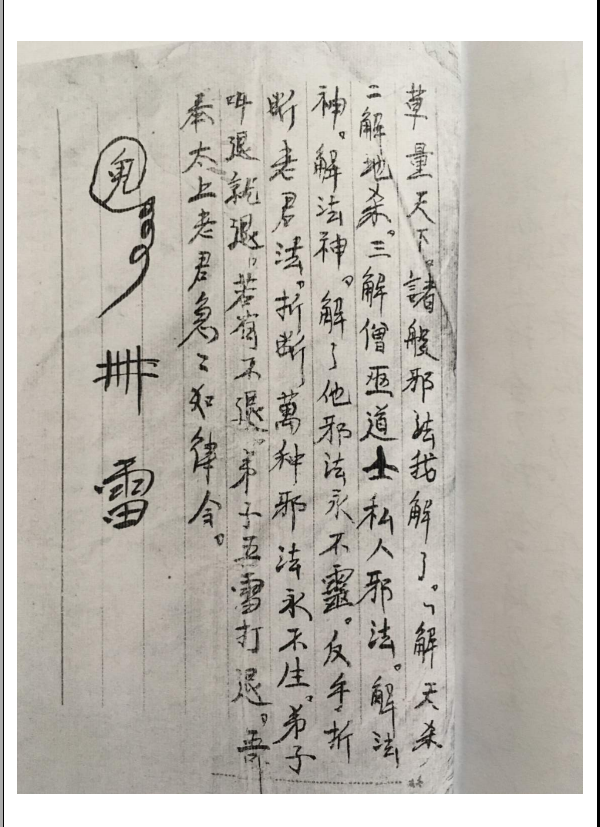 草量天下。諸般邪法我解了。一解天杀
二解地杀。三解僧巫道士私人邪法。解法
神。解法神。解了他邪法永不靈。反手折
断老君法。折断萬种邪法永不生。弟子
叫退就退。若有不退。弟子五雷打退。吾
奉太上老君急〻如律令。
鬼
井
雷